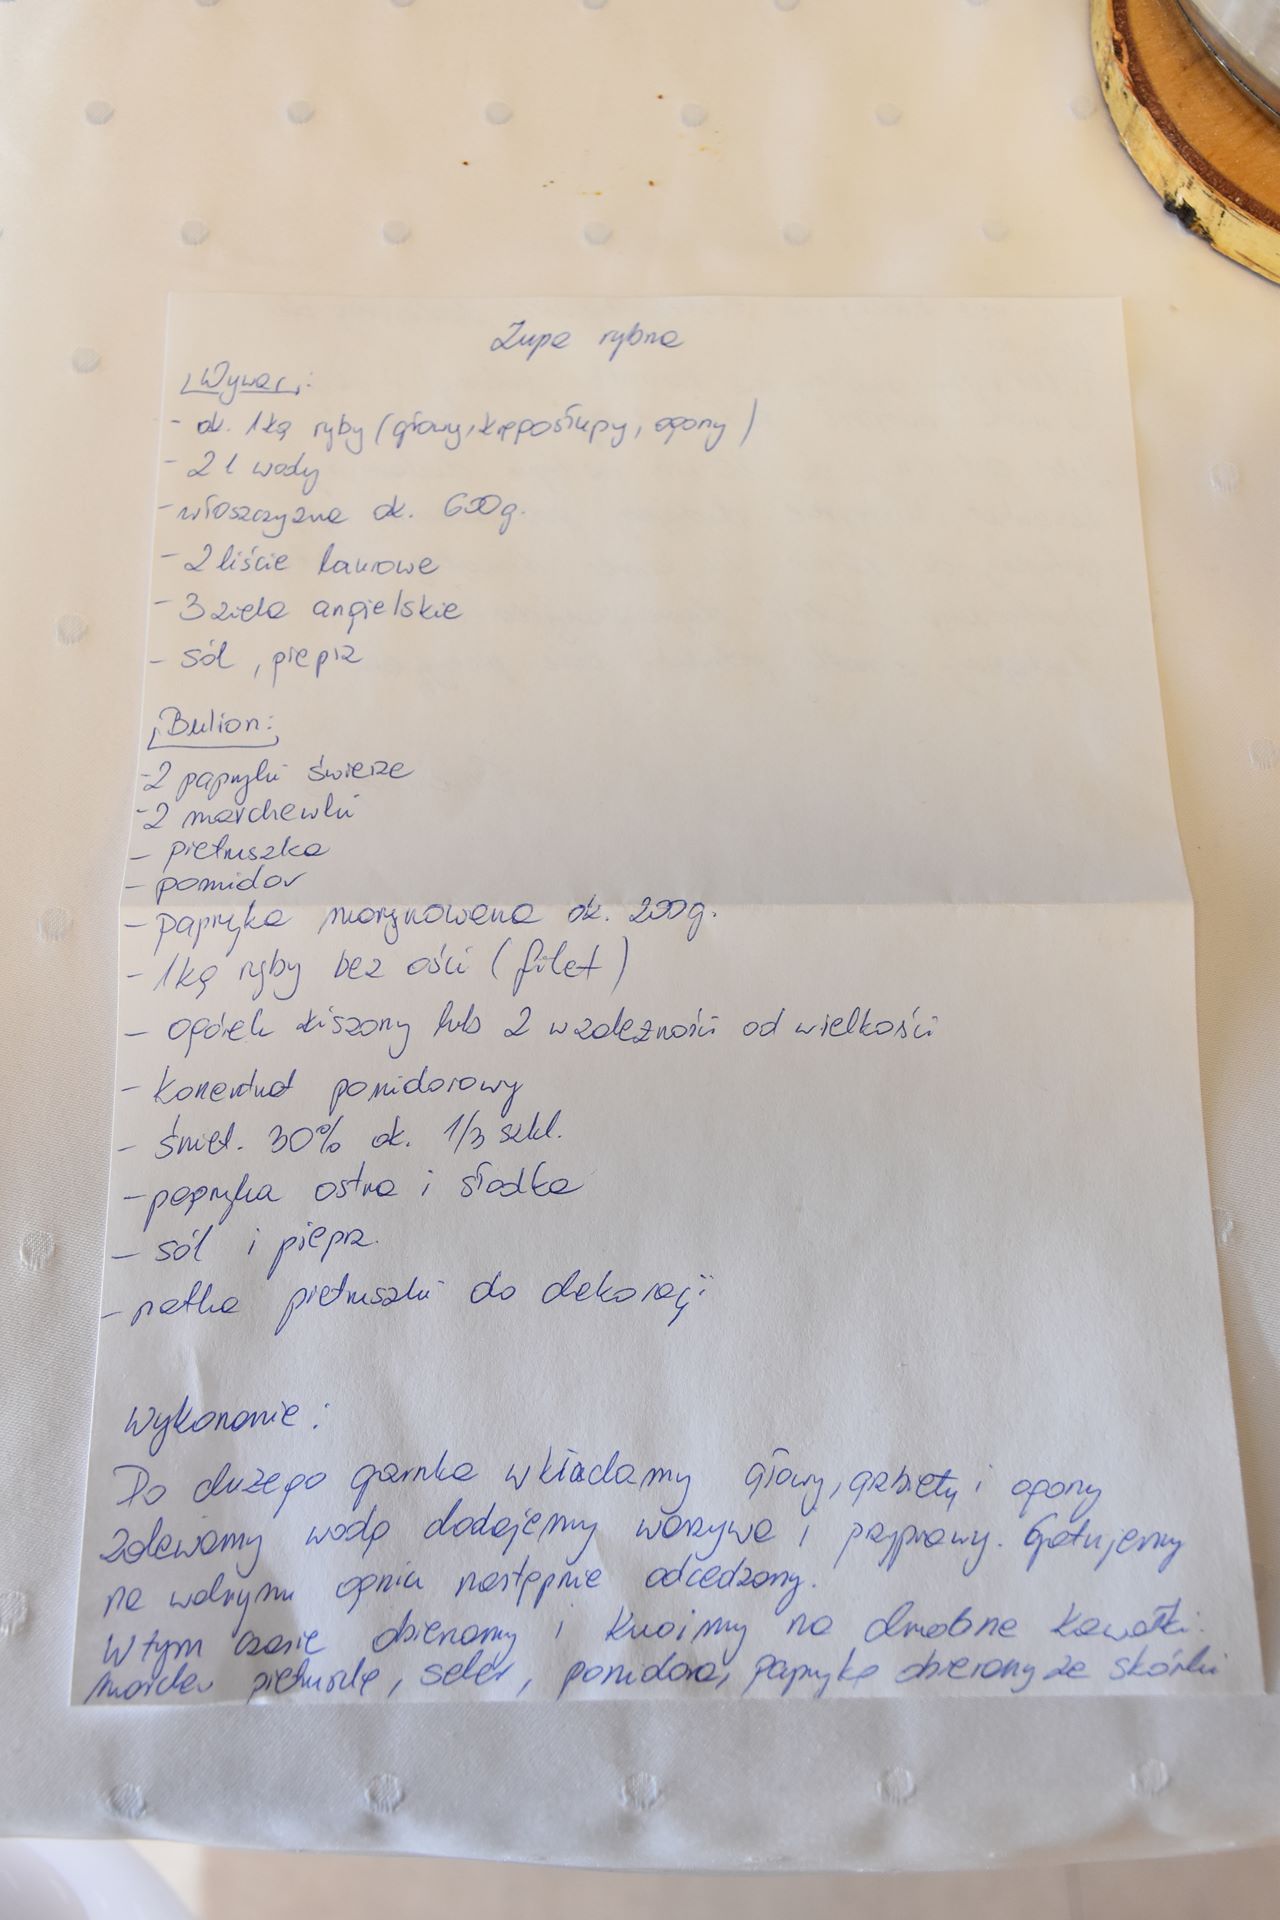 Zupa rybna
Wywar:
- ok. 1kg ryby (głowy, kręgosłupy, ogony)
- 2 l wody
- włoszczyzna ok. 600g.
- 2 liście laurowe
- 3 ziela angielskie
- sól, pieprz
Bulion:
- 2 papryki świerze
- 2 marchewki
- pietruszka
- pomidor
- papryka marynowana ok. 200g.
- 1kg ryby bez ości (filet)
- ogórek kiszony lub 2 w zależności od wielkości
- koncentrat pomidorowy
- śmiet. 30% ok. 1/3 szkl.
- papryka ostra i słodka
- sól i pieprz.
- natka pietruszki do dekoracji
Wykonanie:
Do dużego garnka wkładamy głowy, grzbiety i ogony
zalewamy wodą dodajemy warzywa i przyprawy. Gotujemy
na wolnym ogniu następnie odcedzamy.
W tym czasie obieramy i kroimy na drobne kawałki:
marchew pietruszkę, seler, pomidora, paprykę obieramy ze skórki